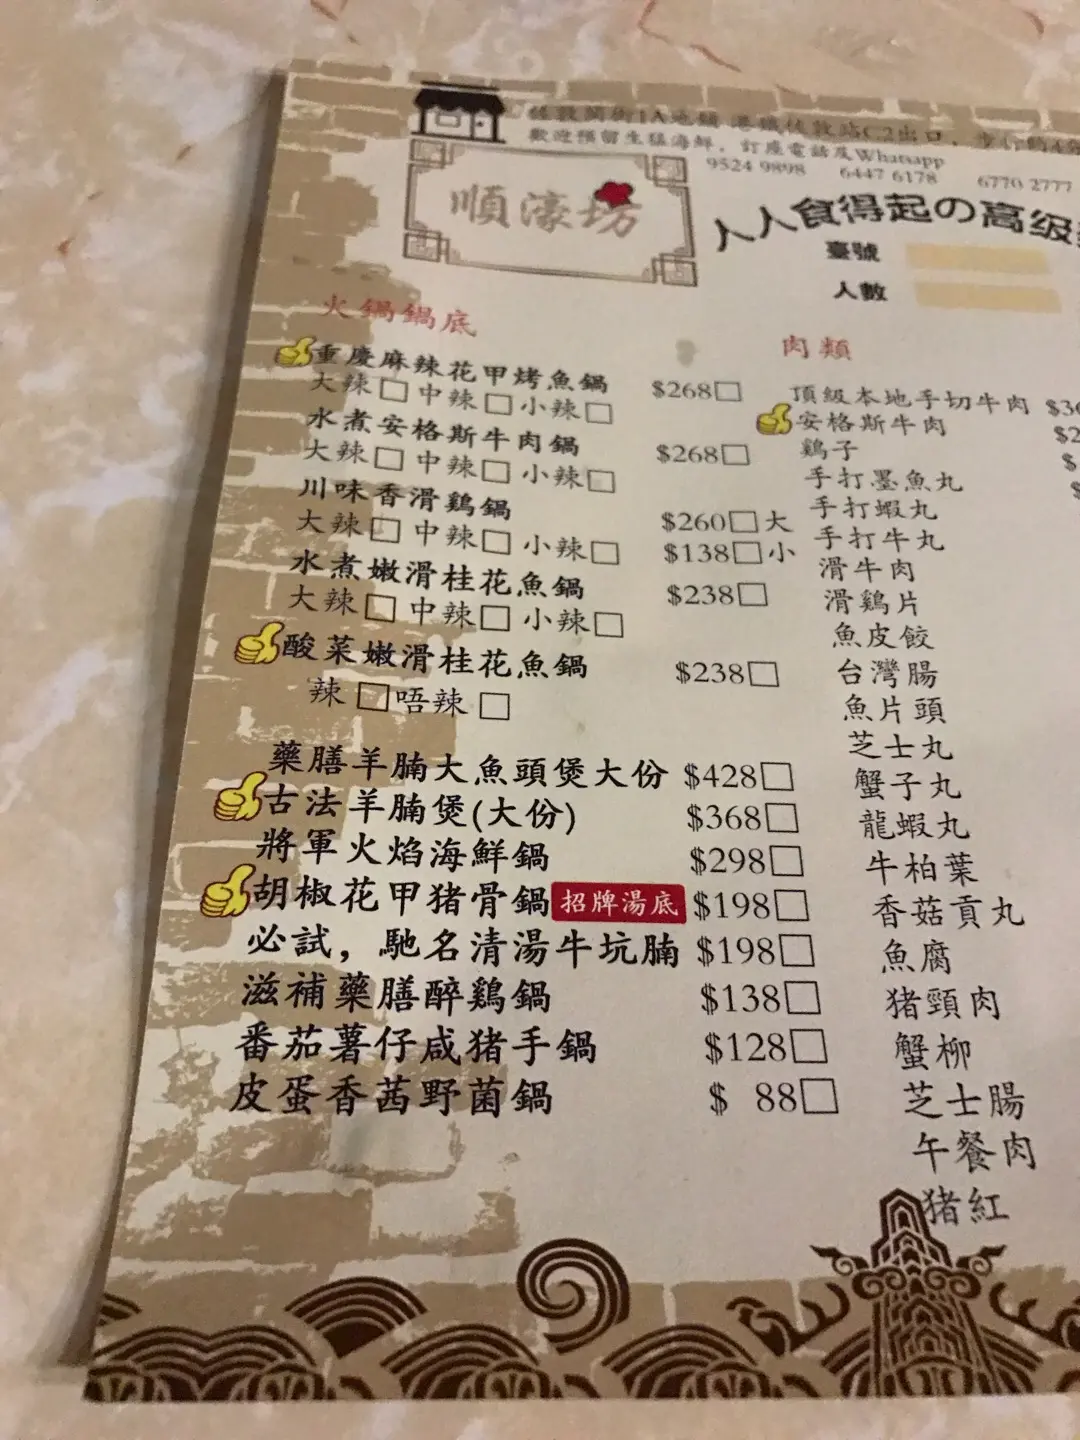 佐敦閣街1A地鋪 港鐵佐敦站C2出口，步行約4分
歡迎預留生猛海鮮，訂座電話及Whatsapp
9524 9898 6447 6178 6770 2777
順濠坊
人人食得起の高级
臺號
人數
火鍋鍋底
重慶麻辣花甲烤魚鍋 $268□
大辣□中辣□小辣□
水煮安格斯牛肉鍋 $268□
大辣□中辣□小辣□
川味香滑鷄鍋 $260□大
大辣□中辣□小辣□ $138□小
水煮嫩滑桂花魚鍋 $238□
大辣□中辣□小辣□
酸菜嫩滑桂花魚鍋 $238□
辣□唔辣□
藥膳羊腩大魚頭煲大份 $428□
古法羊腩煲(大份) $368□
將軍火焰海鮮鍋 $298□
胡椒花甲猪骨鍋 招牌湯底 $198□
必試，馳名清湯牛坑腩 $198□
滋補藥膳醉鷄鍋 $138□
番茄薯仔咸猪手鍋 $128□
皮蛋香茜野菌鍋 $ 88□
肉類
頂級本地手切牛肉
安格斯牛肉
鷄子
手打墨魚丸
手打蝦丸
手打牛丸
滑牛肉
滑鷄片
魚皮餃
台灣腸
魚片頭
芝士丸
蟹子丸
龍蝦丸
牛柏葉
香菇貢丸
魚腐
猪頸肉
蟹柳
芝士腸
午餐肉
猪紅